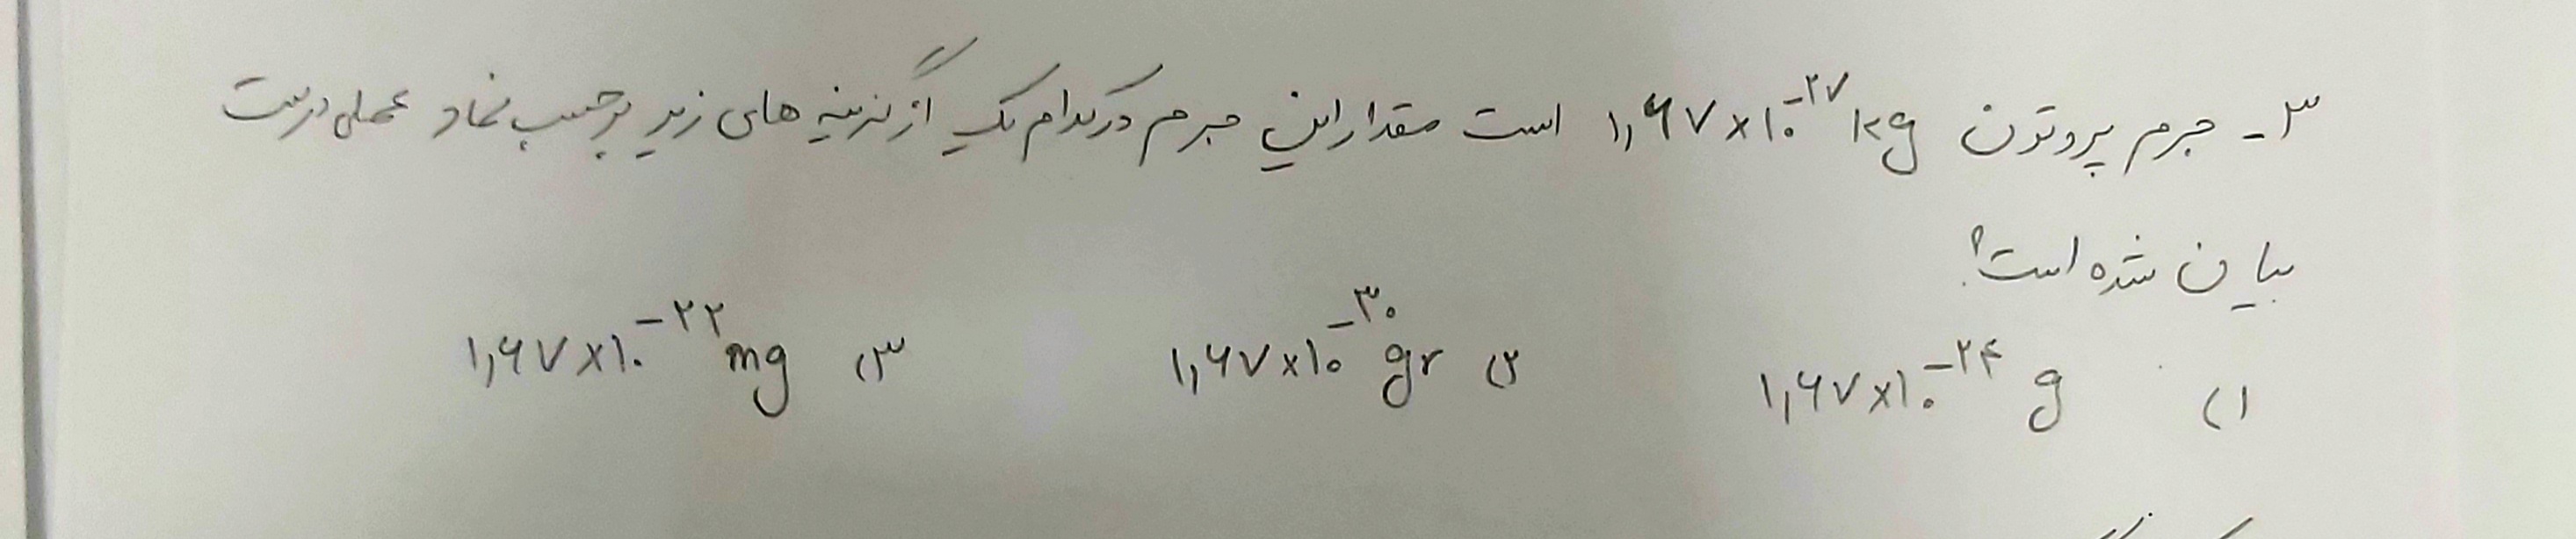 ۳- جرم پروتون ۱,۶۷×۱۰^-۲۷ kg است مقدار این جرم در کدام یک از گزینه های زیر برحسب نماد علمی درست
بیان شده است؟
۱) ۱,۶۷×۱۰^-۲۴ g ۲) ۱,۶۷×۱۰^-۳۰ gr ۳) ۱,۶۷×۱۰^-۲۲ mg